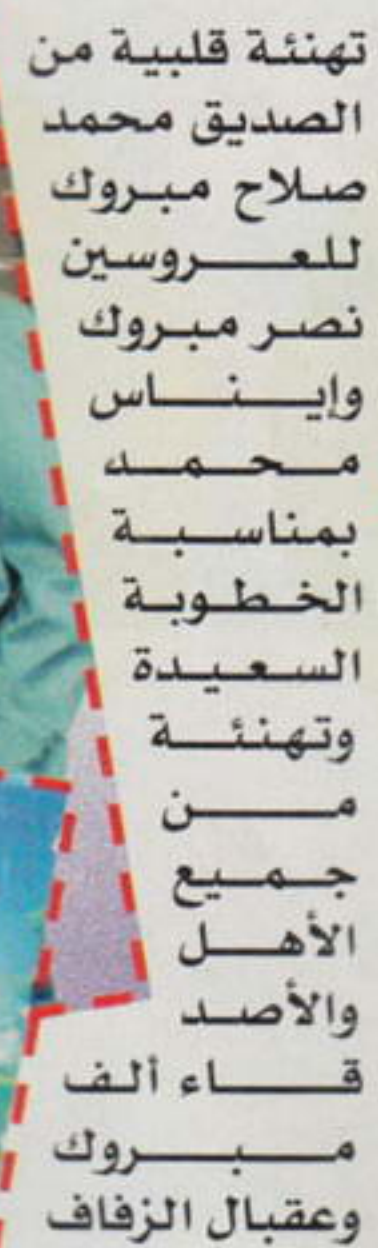 تهنئة قلبية من
الصديق محمد
صلاح مبروك
للعروسين
نصر مبروك
وإيناس
محمد
بمناسبة
الخطوبة
السعيدة
وتهنئة
من
جميع
الأهل
والأصد
قاء ألف
مبروك
وعقبال الزفاف